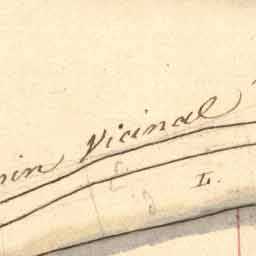 min Vicinal
L.